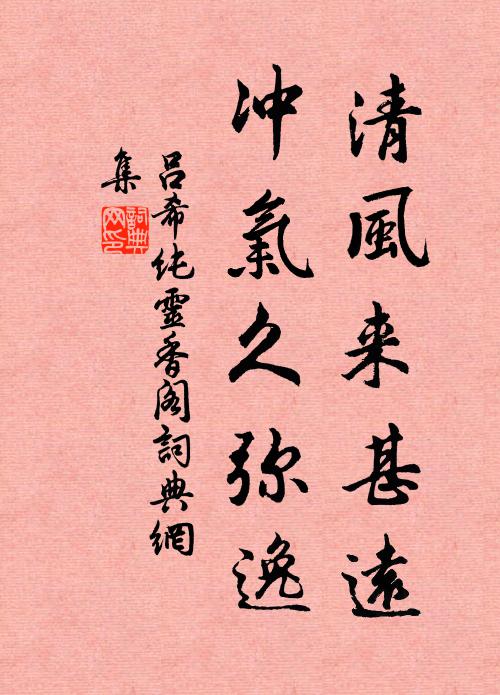 清風来甚遠
冲氣久弥逸
吕希纯靈香阁詞典網
集
詞典网印